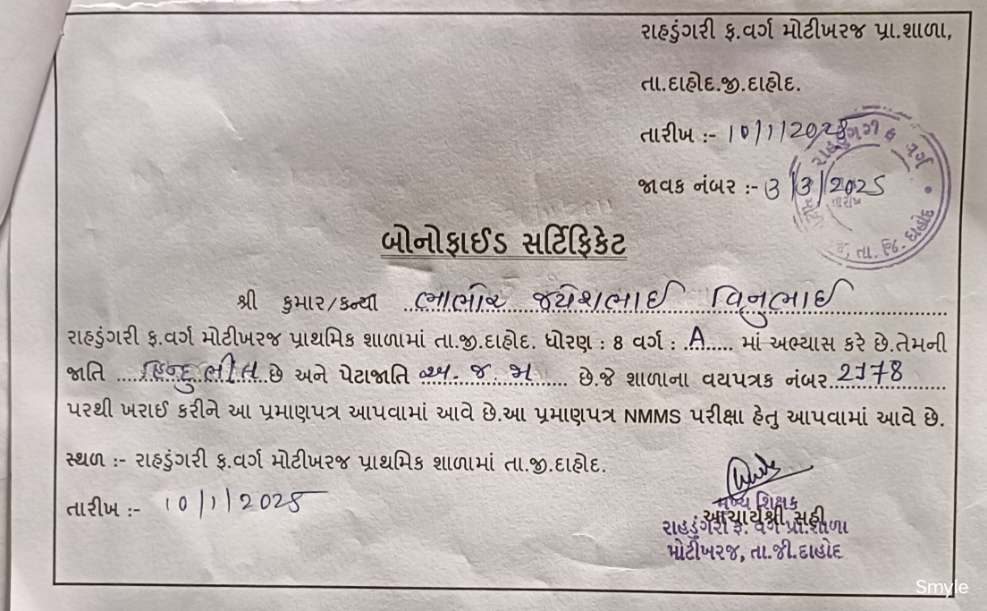 રાહડુંગરી ફ.વર્ગ મોટીખરજ પ્રા.શાળા,
તા.દાહોદ.જી.દાહોદ.
તારીખ :- 10/1/2025
જાવક નંબર :- 3/3/2025
રાહડુંગરી ફ વર્ગ
તારીખ
તા. જિ. દાહોદ
બોનોફાઈડ સર્ટિફિકેટ
શ્રી કુમાર/કન્યા ભાભોર જયેશભાઈ વિનુભાઈ
રાહડુંગરી ફ.વર્ગ મોટીખરજ પ્રાથમિક શાળામાં તા.જી.દાહોદ. ધોરણ : 8 વર્ગ : A માં અભ્યાસ કરે છે.તેમની
જાતિ હિન્દુ ભીલ છે અને પેટાજાતિ અ.જ.જ છે.જે શાળાના વયપત્રક નંબર 2178
પરથી ખરાઈ કરીને આ પ્રમાણપત્ર આપવામાં આવે છે.આ પ્રમાણપત્ર NMMS પરીક્ષા હેતુ આપવામાં આવે છે.
સ્થળ :- રાહડુંગરી ફ.વર્ગ મોટીખરજ પ્રાથમિક શાળામાં તા.જી.દાહોદ.
તારીખ :- 10/1/2025
મુખ્ય શિક્ષક
આચાર્યશ્રી સહી
રાહડુંગરી ફ. વર્ગ પ્રા.શાળા
મોટીખરજ, તા.જી.દાહોદ
Smyle